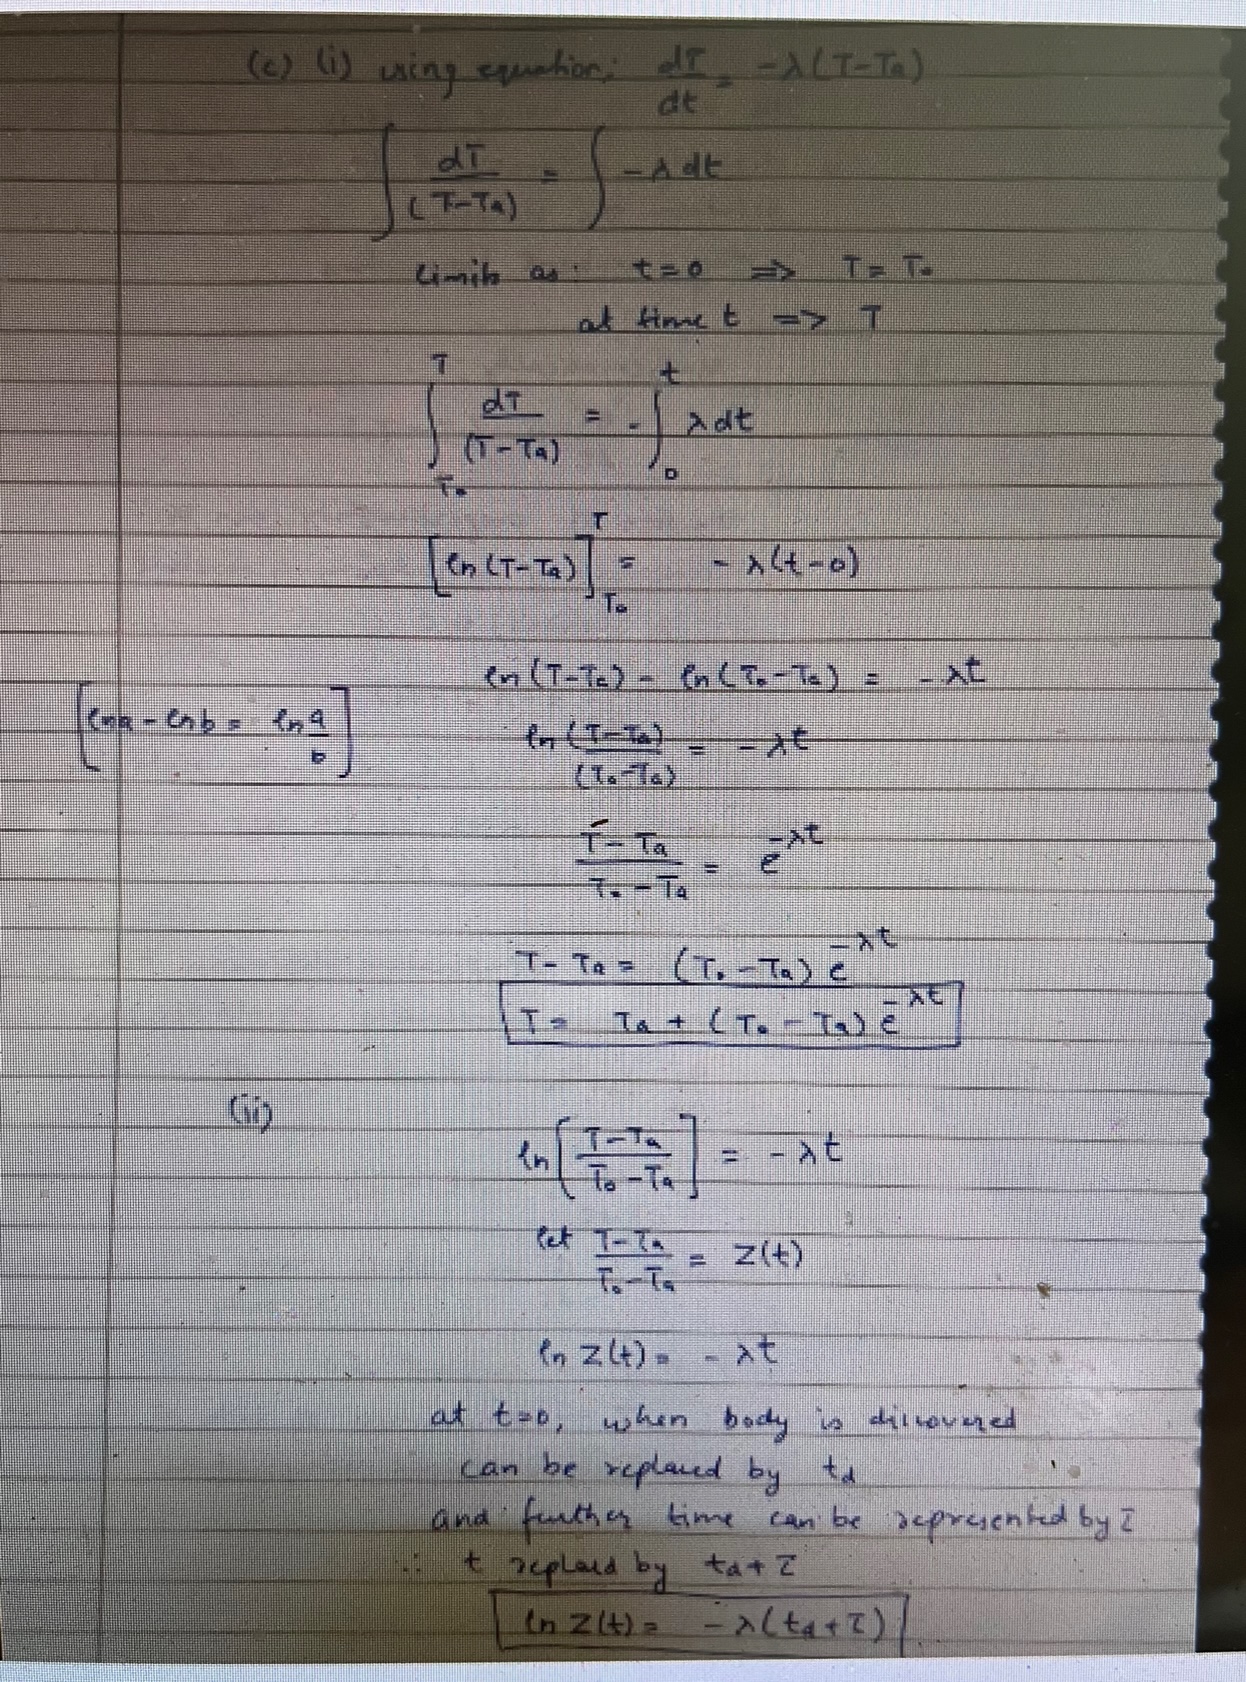 (c) (i) using equation; dT/dt = -λ(T-Ta)
∫ dT/(T-Ta) = ∫ -λ dt
Limits as: t=0 => T = T₀
at time t => T
∫_{T₀}^{T} dT/(T-Ta) = -∫_{0}^{t} λ dt
[ln (T-Ta)]_{T₀}^{T} = -λ(t-0)
ln (T-Ta) - ln (T₀-Ta) = -λt
[lna - lnb = ln a/b]
ln (T-Ta)/(T₀-Ta) = -λt
T-Ta/T₀-Ta = e^{-λt}
T-Ta = (T₀-Ta) e^{-λt}
T = Ta + (T₀-Ta) e^{-λt}
(ii)
ln [T-Ta/T₀-Ta] = -λt
let T-Ta/T₀-Ta = Z(t)
ln Z(t) = -λt
at t=0, when body is discovered
can be replaced by td
and further time can be represented by τ
∴ t replaed by td + τ
ln Z(t) = -λ(td + τ)